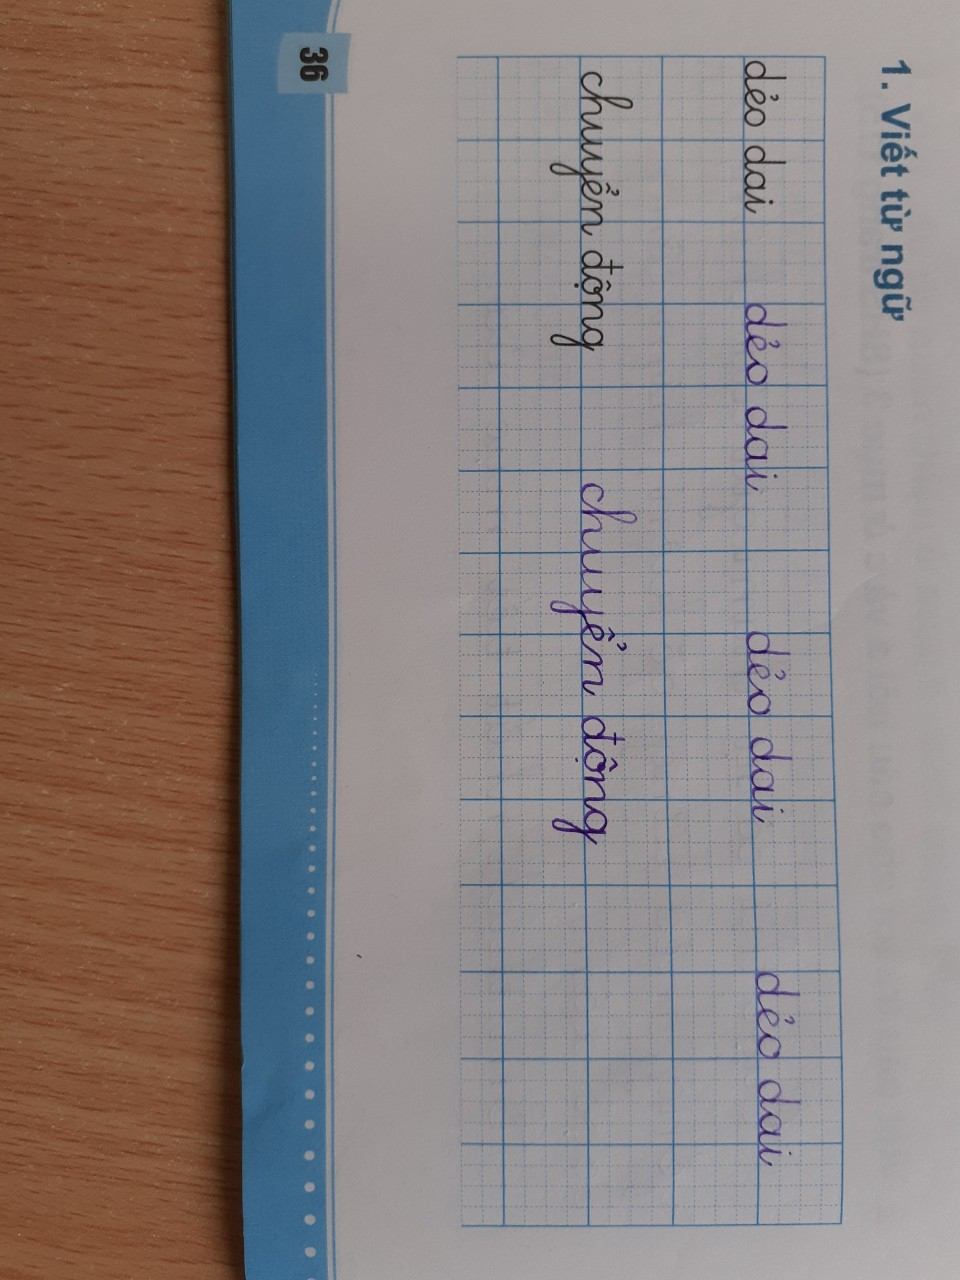 1. Viết từ ngữ
dẻo dai dẻo dai dẻo dai dẻo dai
chuyển động chuyển động
36